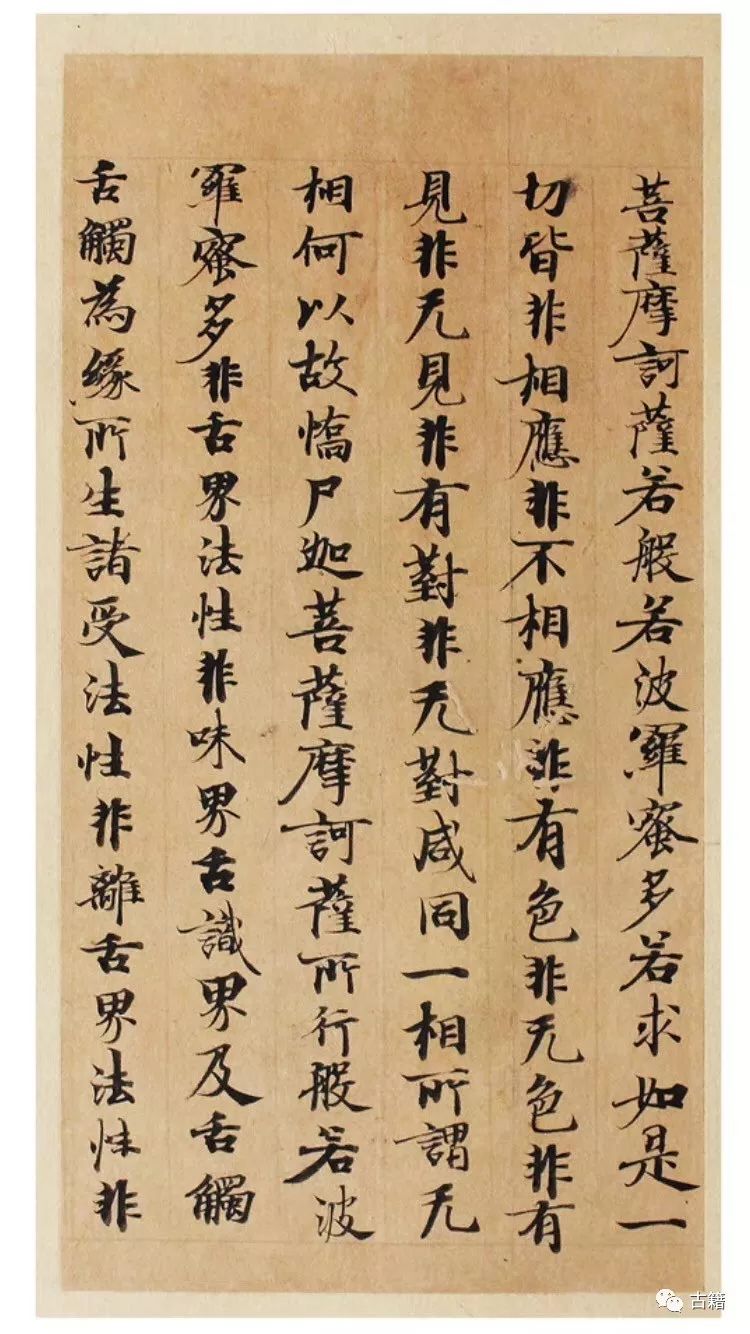 菩薩摩訶薩若般若波羅蜜多若求如是一
切皆非相應非不相應非有色非无色非有
見非无見非有對非无對咸同一相所謂无
相何以故憍尸迦菩薩摩訶薩所行般若波
羅蜜多非舌界法性非味界舌識界及舌觸
舌觸為緣所生諸受法性非離舌界法性非
古籍